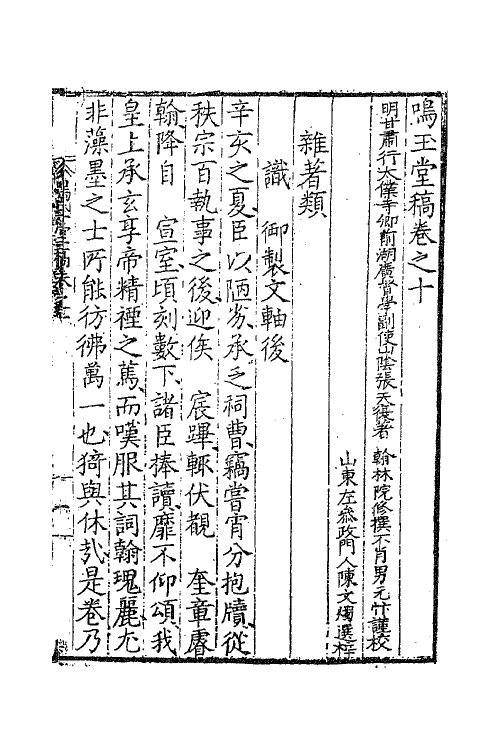 鳴玉堂稿卷之十
明甘肅行太僕寺卿前湖廣督學副使山陰張天復著 翰林院修撰不肖男元忭謹校
山東左叅政門人陳文燭選梓
雜著類
識 御製文軸後
辛亥之夏臣以陋劣承乏祠曹竊嘗宵分抱牘從
秩宗百執事之後迎俟 宸蹕輒伏覩 奎章睿
翰降自 宣室頃刻數下諸臣捧讀靡不仰頌我
皇上承玄享帝精禋之篤而嘆服其詞翰瑰麗尤
非藻墨之士所能彷彿萬一也猗與休哉是卷乃